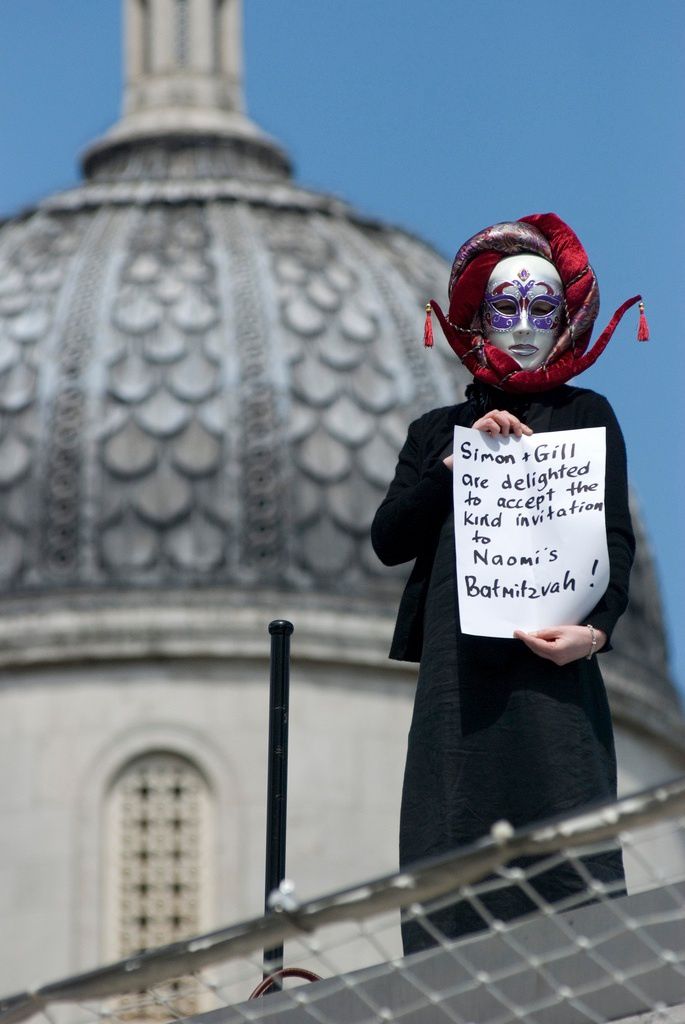 Simon + Gill
are delighted
to accept the
kind invitation
to
Naomi's
Batmitzvah!